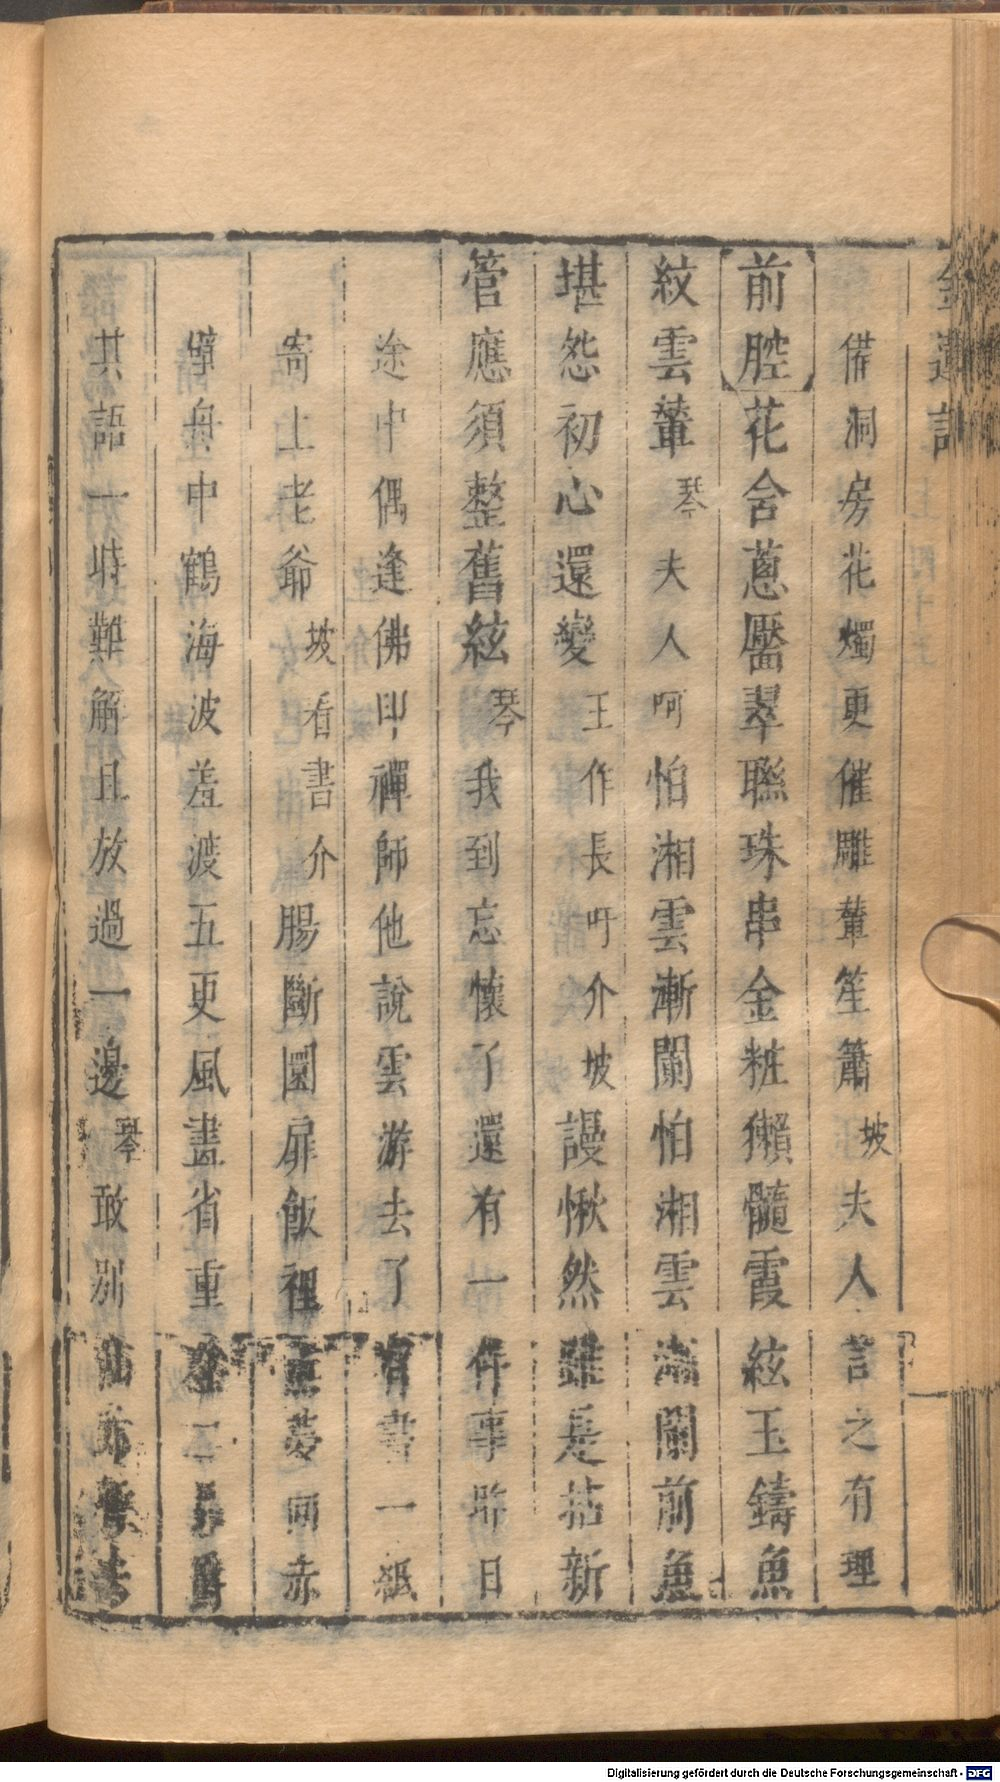 金蓮記
備洞房花燭更催雕輦笙簫坡夫人言之有理
前腔花舍蔥靨翠聯珠串金粧獺髓霞絃玉鑄魚
紋雲輦琴夫人呵怕湘雲漸闌怕湘雲漸闌前魚
堪怨初心還變王作長吁介坡謾愀然雖是拈新
管應須整舊絃琴我到忘懷了還有一件事昨日
途中偶逢佛印禪師他說雲游去了有書一紙
寄上老爺坡看書介腸斷圜扉飯裡夢回赤
壁舟中鶴海波羞渡五更風畫省重二
其語一時難解且放過一邊琴敢別
Digitalisierung gefördert durch die Deutsche Forschungsgemeinschaft - DFG